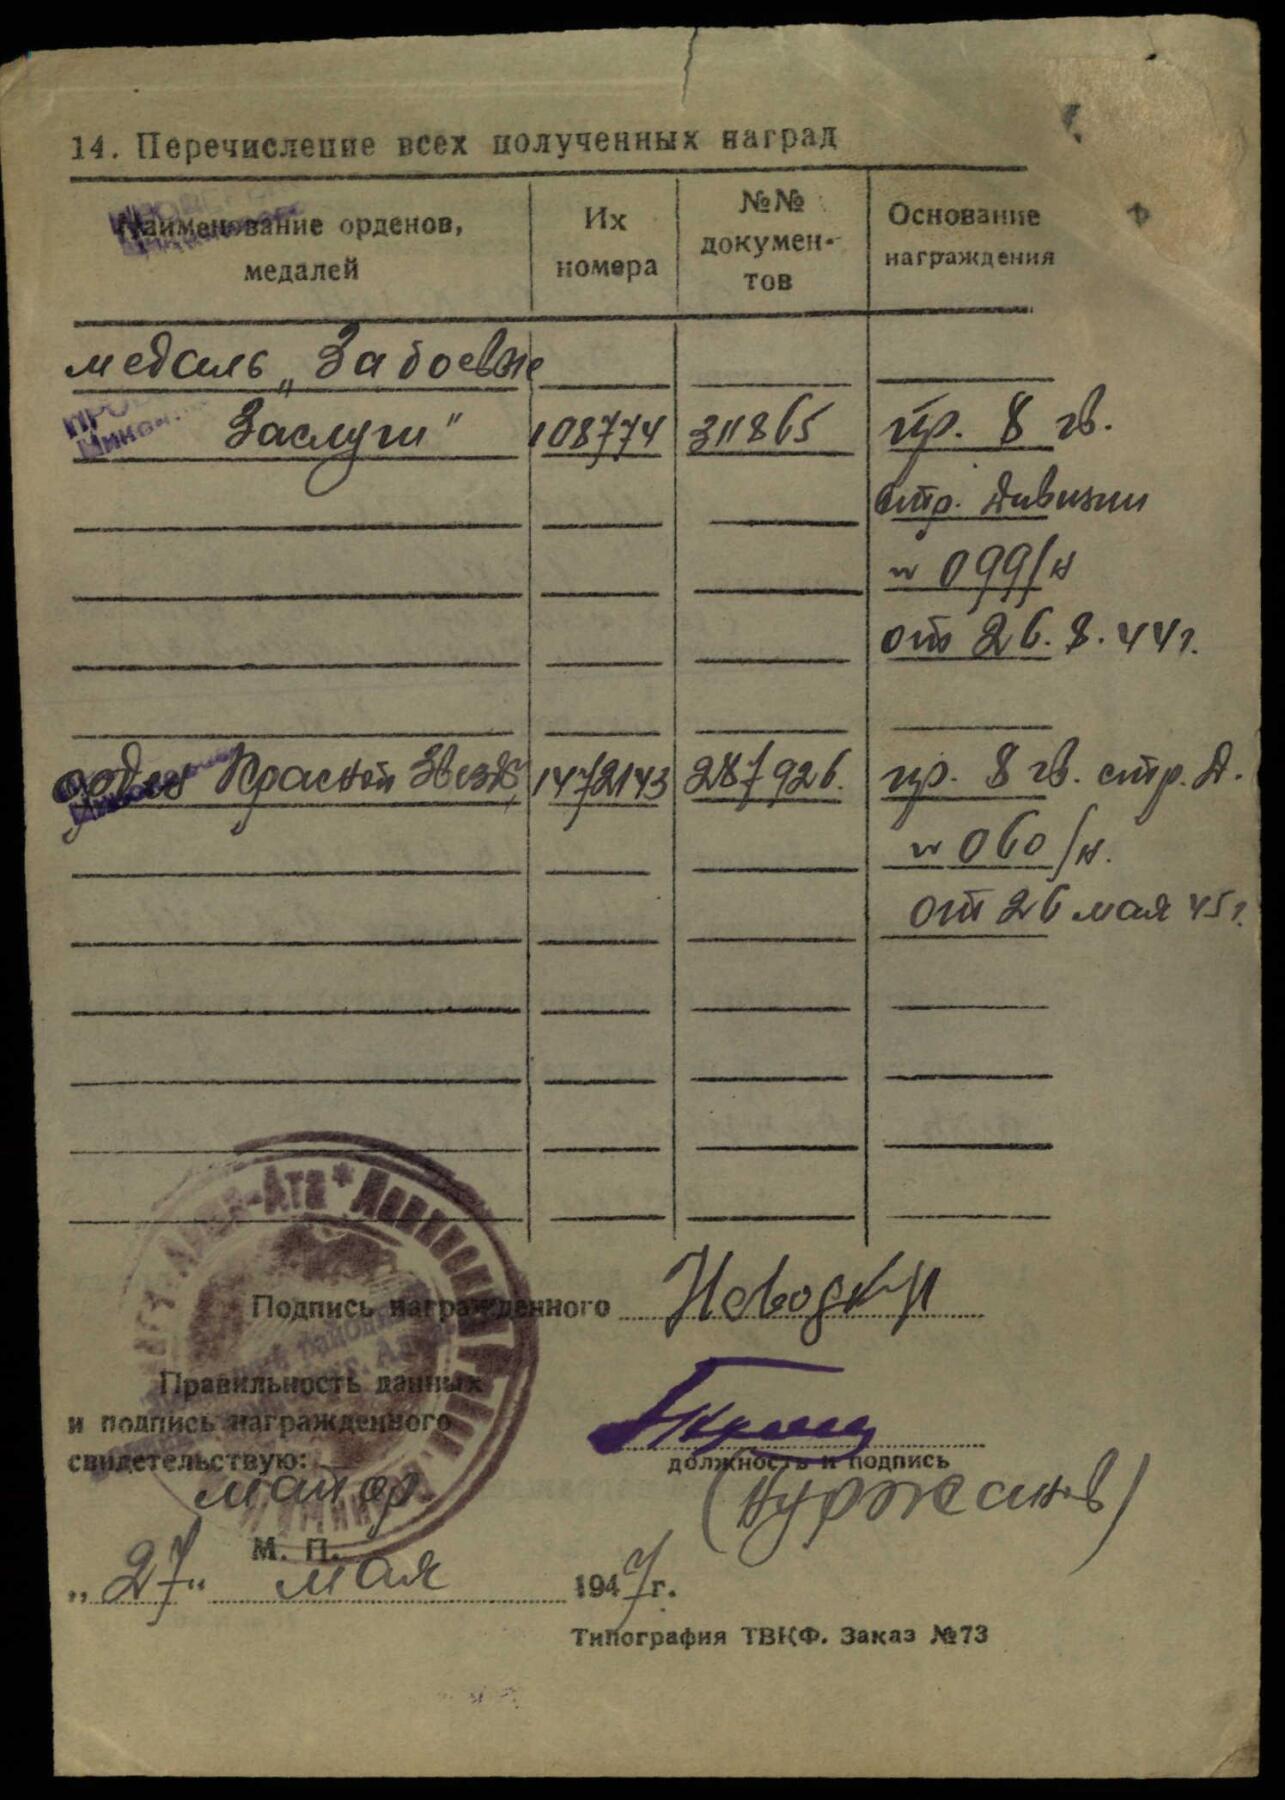 14. Перечисление всех полученных наград
Наименование орденов, медалей
Их номера
№№ документов
Основание награждения
медаль „За боевые
Заслуги" 108774 311865 пр. 8 гв.
стр. дивизии
№ 099/н
от 26.8.44г.
орден Красной Звезды 1472143 287926. пр. 8 гв. стр. д.
№ 060/н.
от 26 мая 45г.
Подпись награжденного
Правильность данных
и подпись награжденного
свидетельствую:
должность и подпись
майор
(Нуржанов)
М. П.
„27" мая 1947г.
Типография ТВКФ. Заказ №73